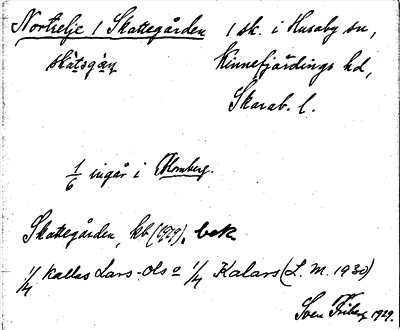 Norrelje 1 Skattegården 1 sk. i Husaby sn,
skàtsgàṇ Kinnefjärdings hd,
Skarab. l.
1/6 ingår i Blomberg.
Skattegården, kb (1929). bek
1/4 kallas Lars-Ols o 1/4 Kalars (L. M. 1930)
Sven Friberg 1929.